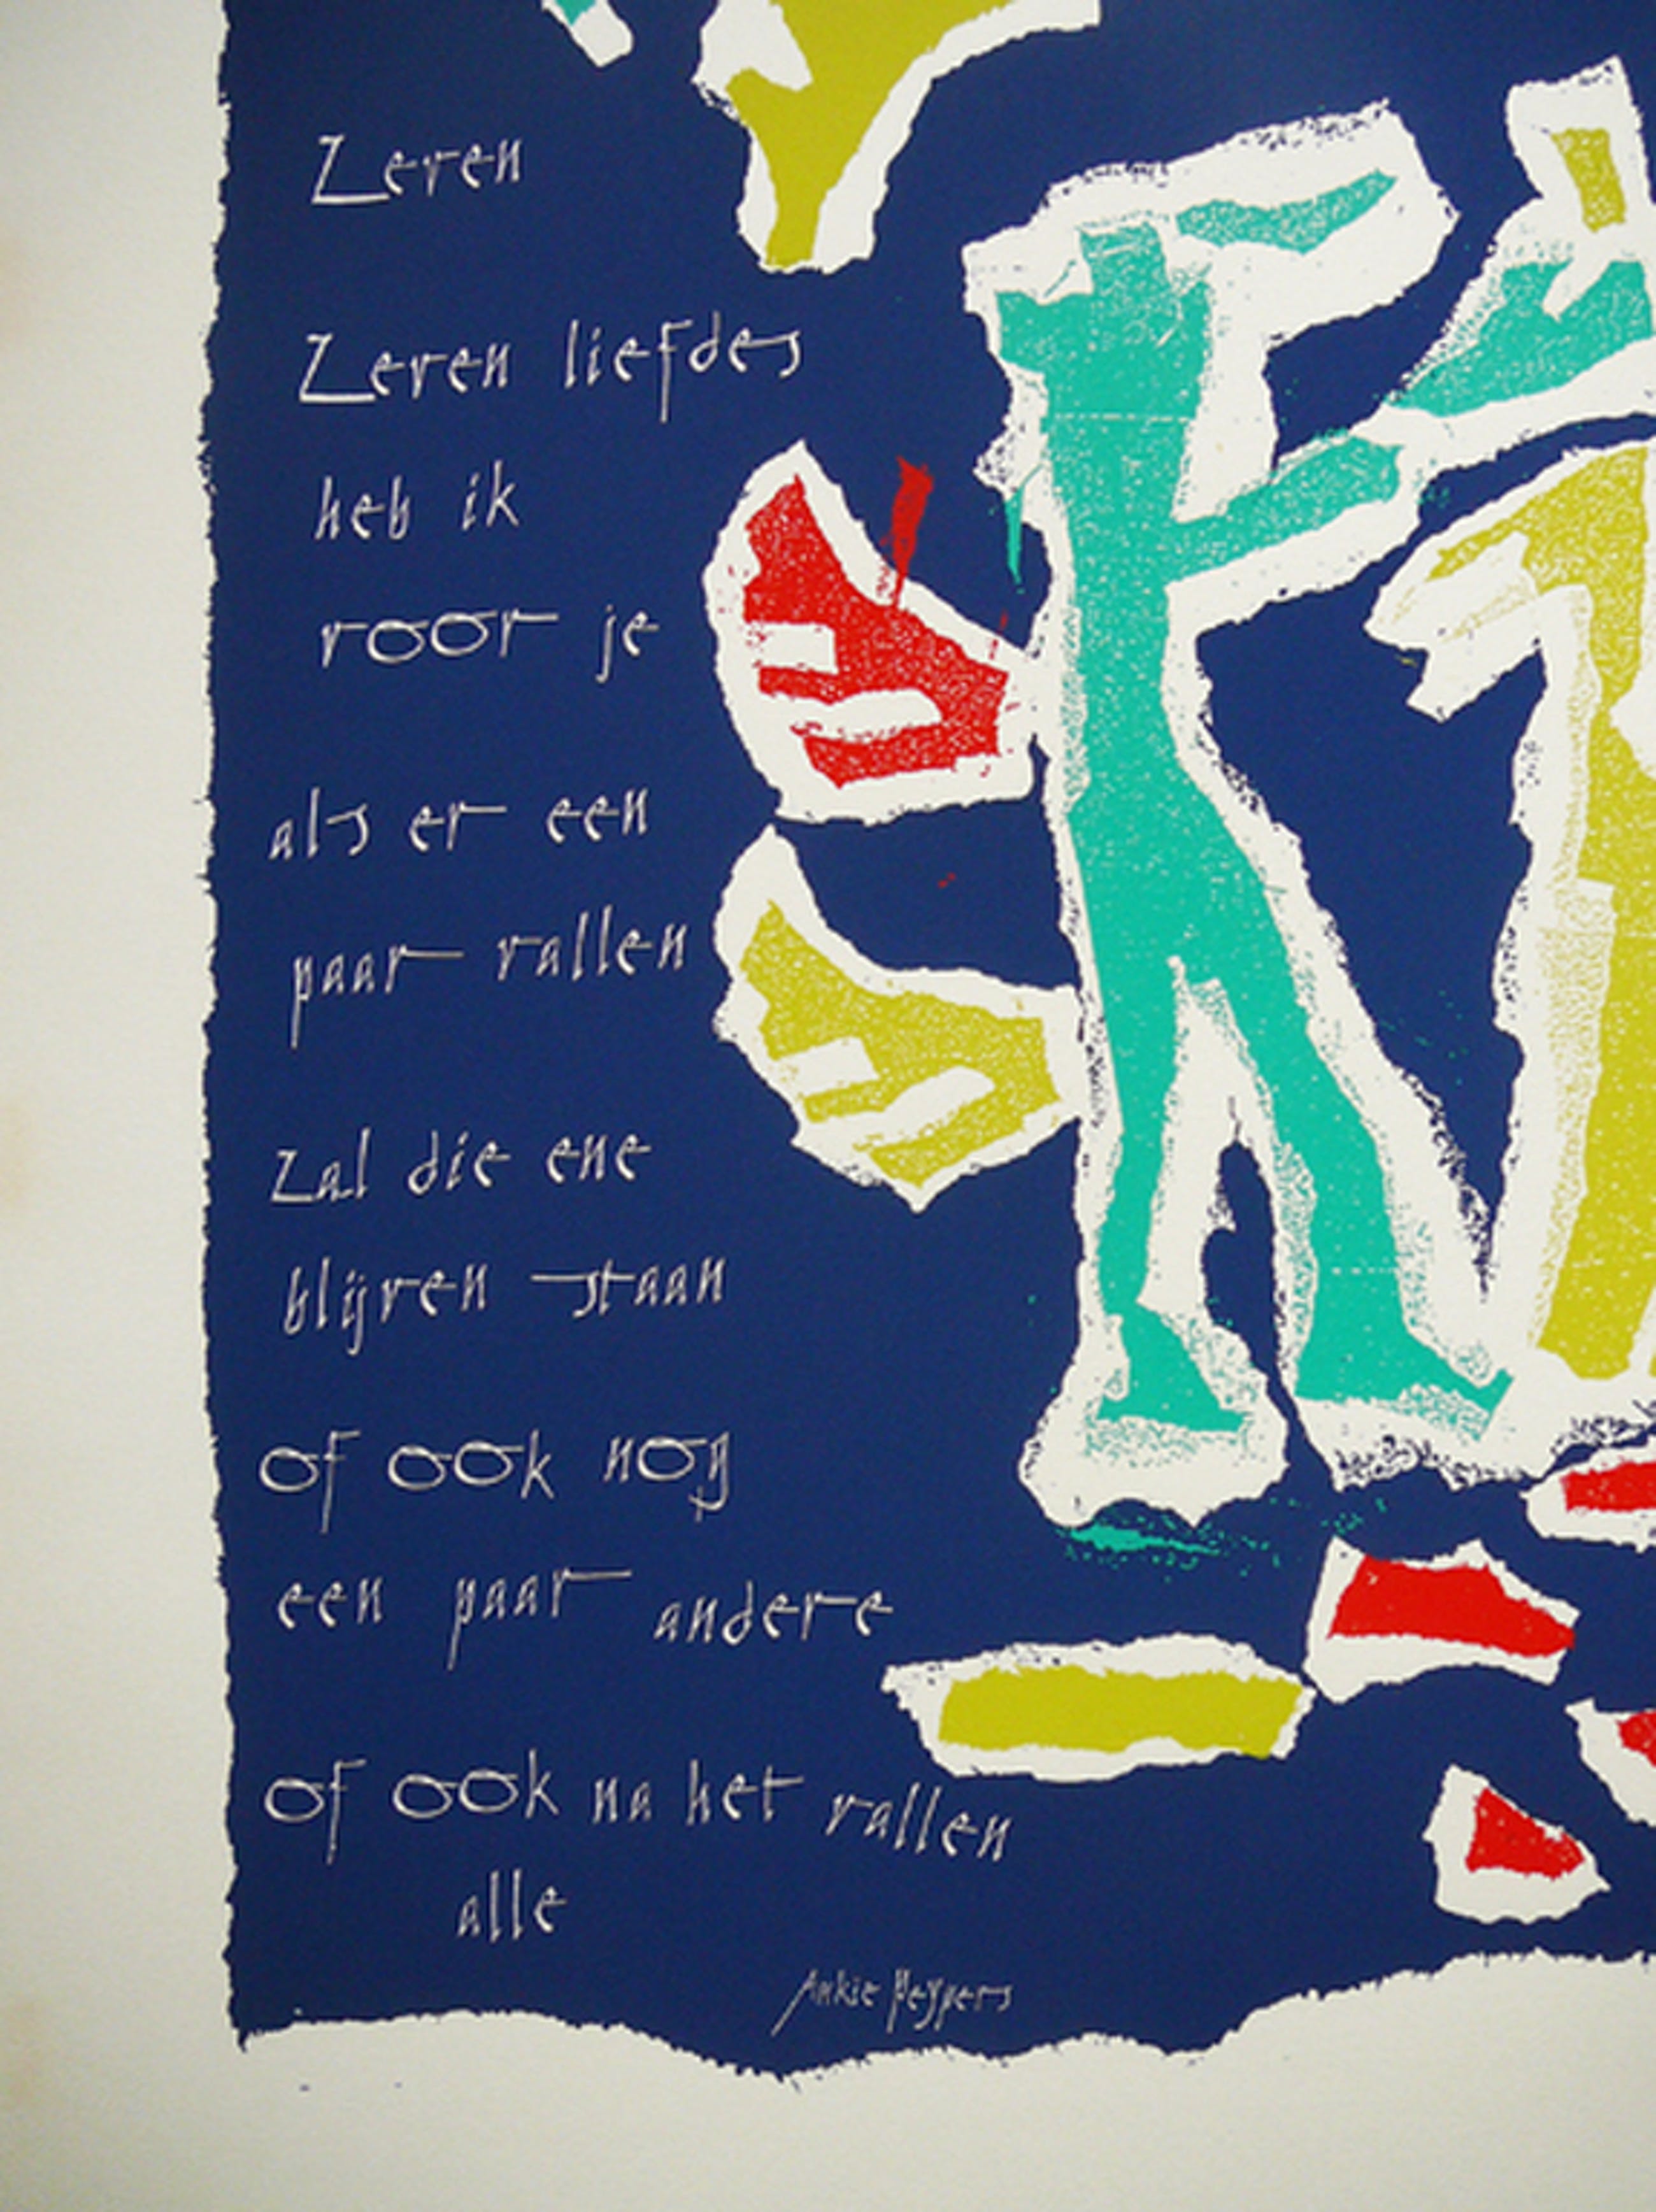 Zeven
Zeven liefdes
heb ik
voor je
als er een
paar vallen
zal die ene
blijven staan
of ook nog
een paar andere
of ook na het vallen
alle
Ankie Peypers